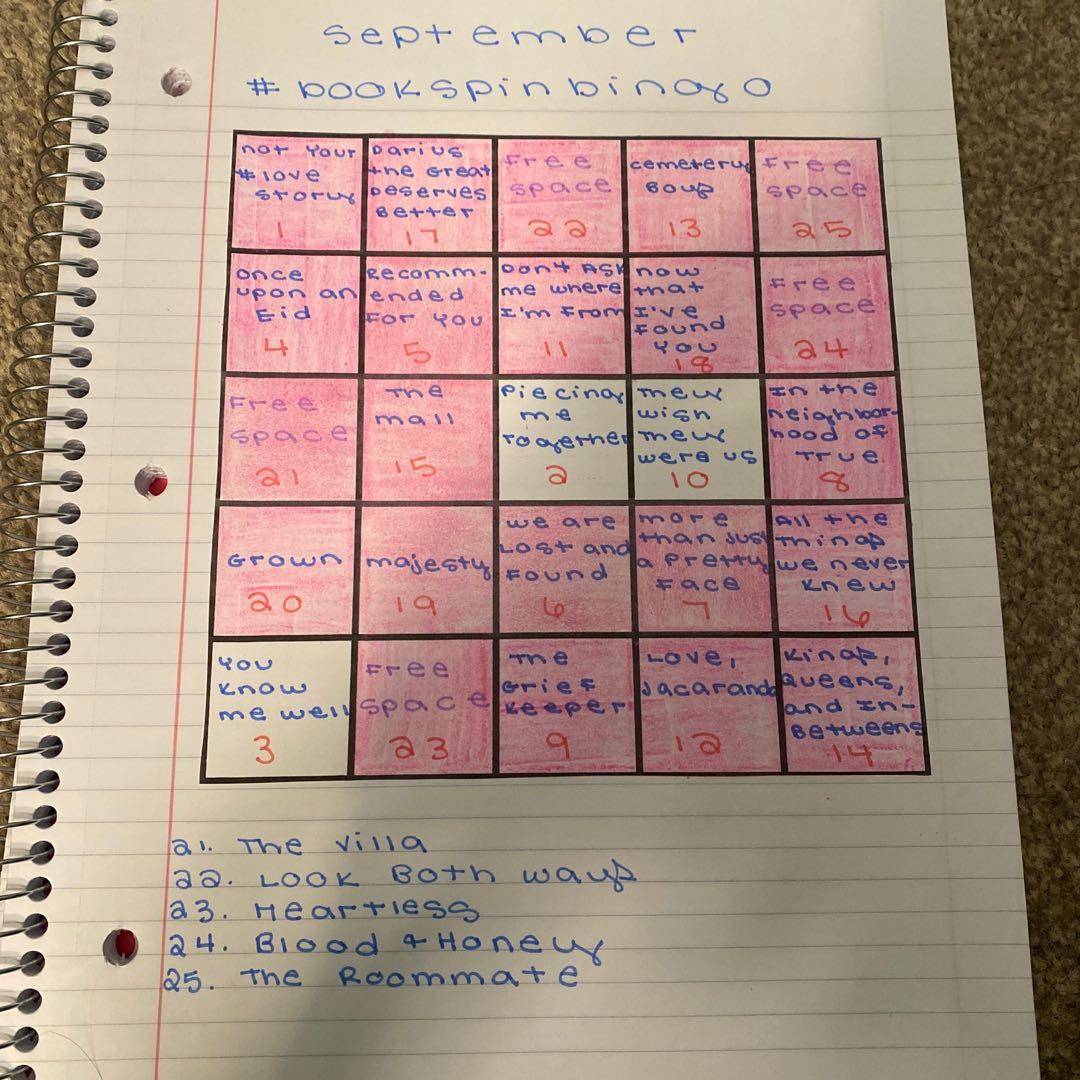 september
#bookspinbingo
not your
#love
story
1
Darius
the Great
Deserves
Better
17
Free
space
22
cemetery
Boys
13
Free
space
25
once
upon an
Eid
4
Recomm-
ended
For You
5
Don't Ask
me where
I'm From
11
now
that
I've
Found
You
18
Free
space
24
Free
space
21
The
mall
15
Piecing
me
Together
2
They
wish
They
were us
10
In the
neighbor-
hood of
True
8
Grown
20
majesty
19
we are
Lost and
Found
6
more
than just
a Pretty
Face
7
All the
things
we never
knew
16
You
know
me well
3
Free
space
23
The
Grief
Keeper
9
Love,
Jacaranda
12
Kings,
Queens,
and In-
Betweens
14
21. The villa
22. Look Both ways
23. Heartless
24. Blood & Honey
25. The Roommate